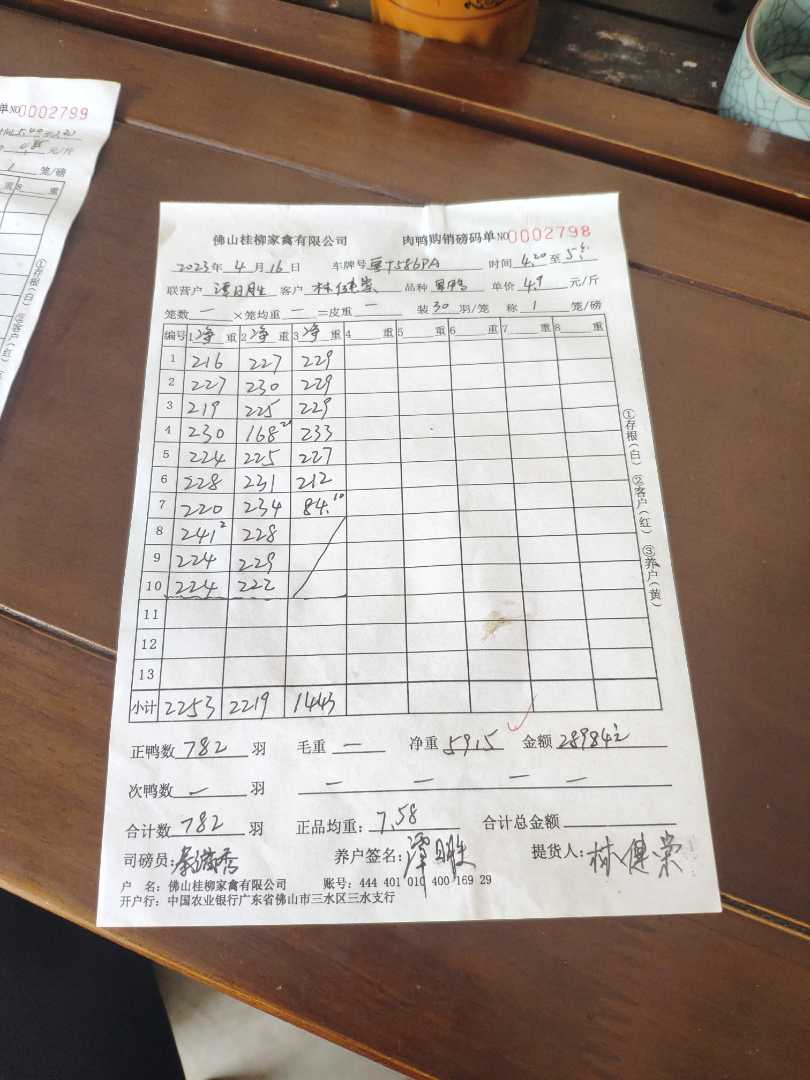 单NO0002799
元/斤
1 笼/磅
重 8 重
①存根(白)
佛山桂柳家禽有限公司 肉鸭购销磅码单NO0002798
2023年 4 月 16 日 车牌号 粤T586PA 时间 4:20 至
联营户 谭日胜 客户 品种 单价 4.9 元/斤
笼数 一 ×笼均重 一 =皮重 一 装 30 羽/笼 称 1 笼/磅
编号 1 净 重 2 净 重 3 净 重 4 重 5 重 6 重 7 重 8 重
1 216 227 229
2 227 230 229
3 219 225 229
4 230 168 233
5 224 225 227
6 228 231 212
7 220 234 84.10
8 241 2 228
9 224 229
10 224 222
11
12
13
小计 2253 2219 1443
①存根(白) ②客户(红) ③养户(黄)
正鸭数 782 羽 毛重 一 净重 5915 金额
次鸭数 一 羽 一 一 一 一
合计数 782 羽 正品均重: 7.58 合计总金额
司磅员: 养户签名: 谭日胜 提货人:
户 名: 佛山桂柳家禽有限公司 账号: 444 401 010 400 169 29
开户行: 中国农业银行广东省佛山市三水区三水支行